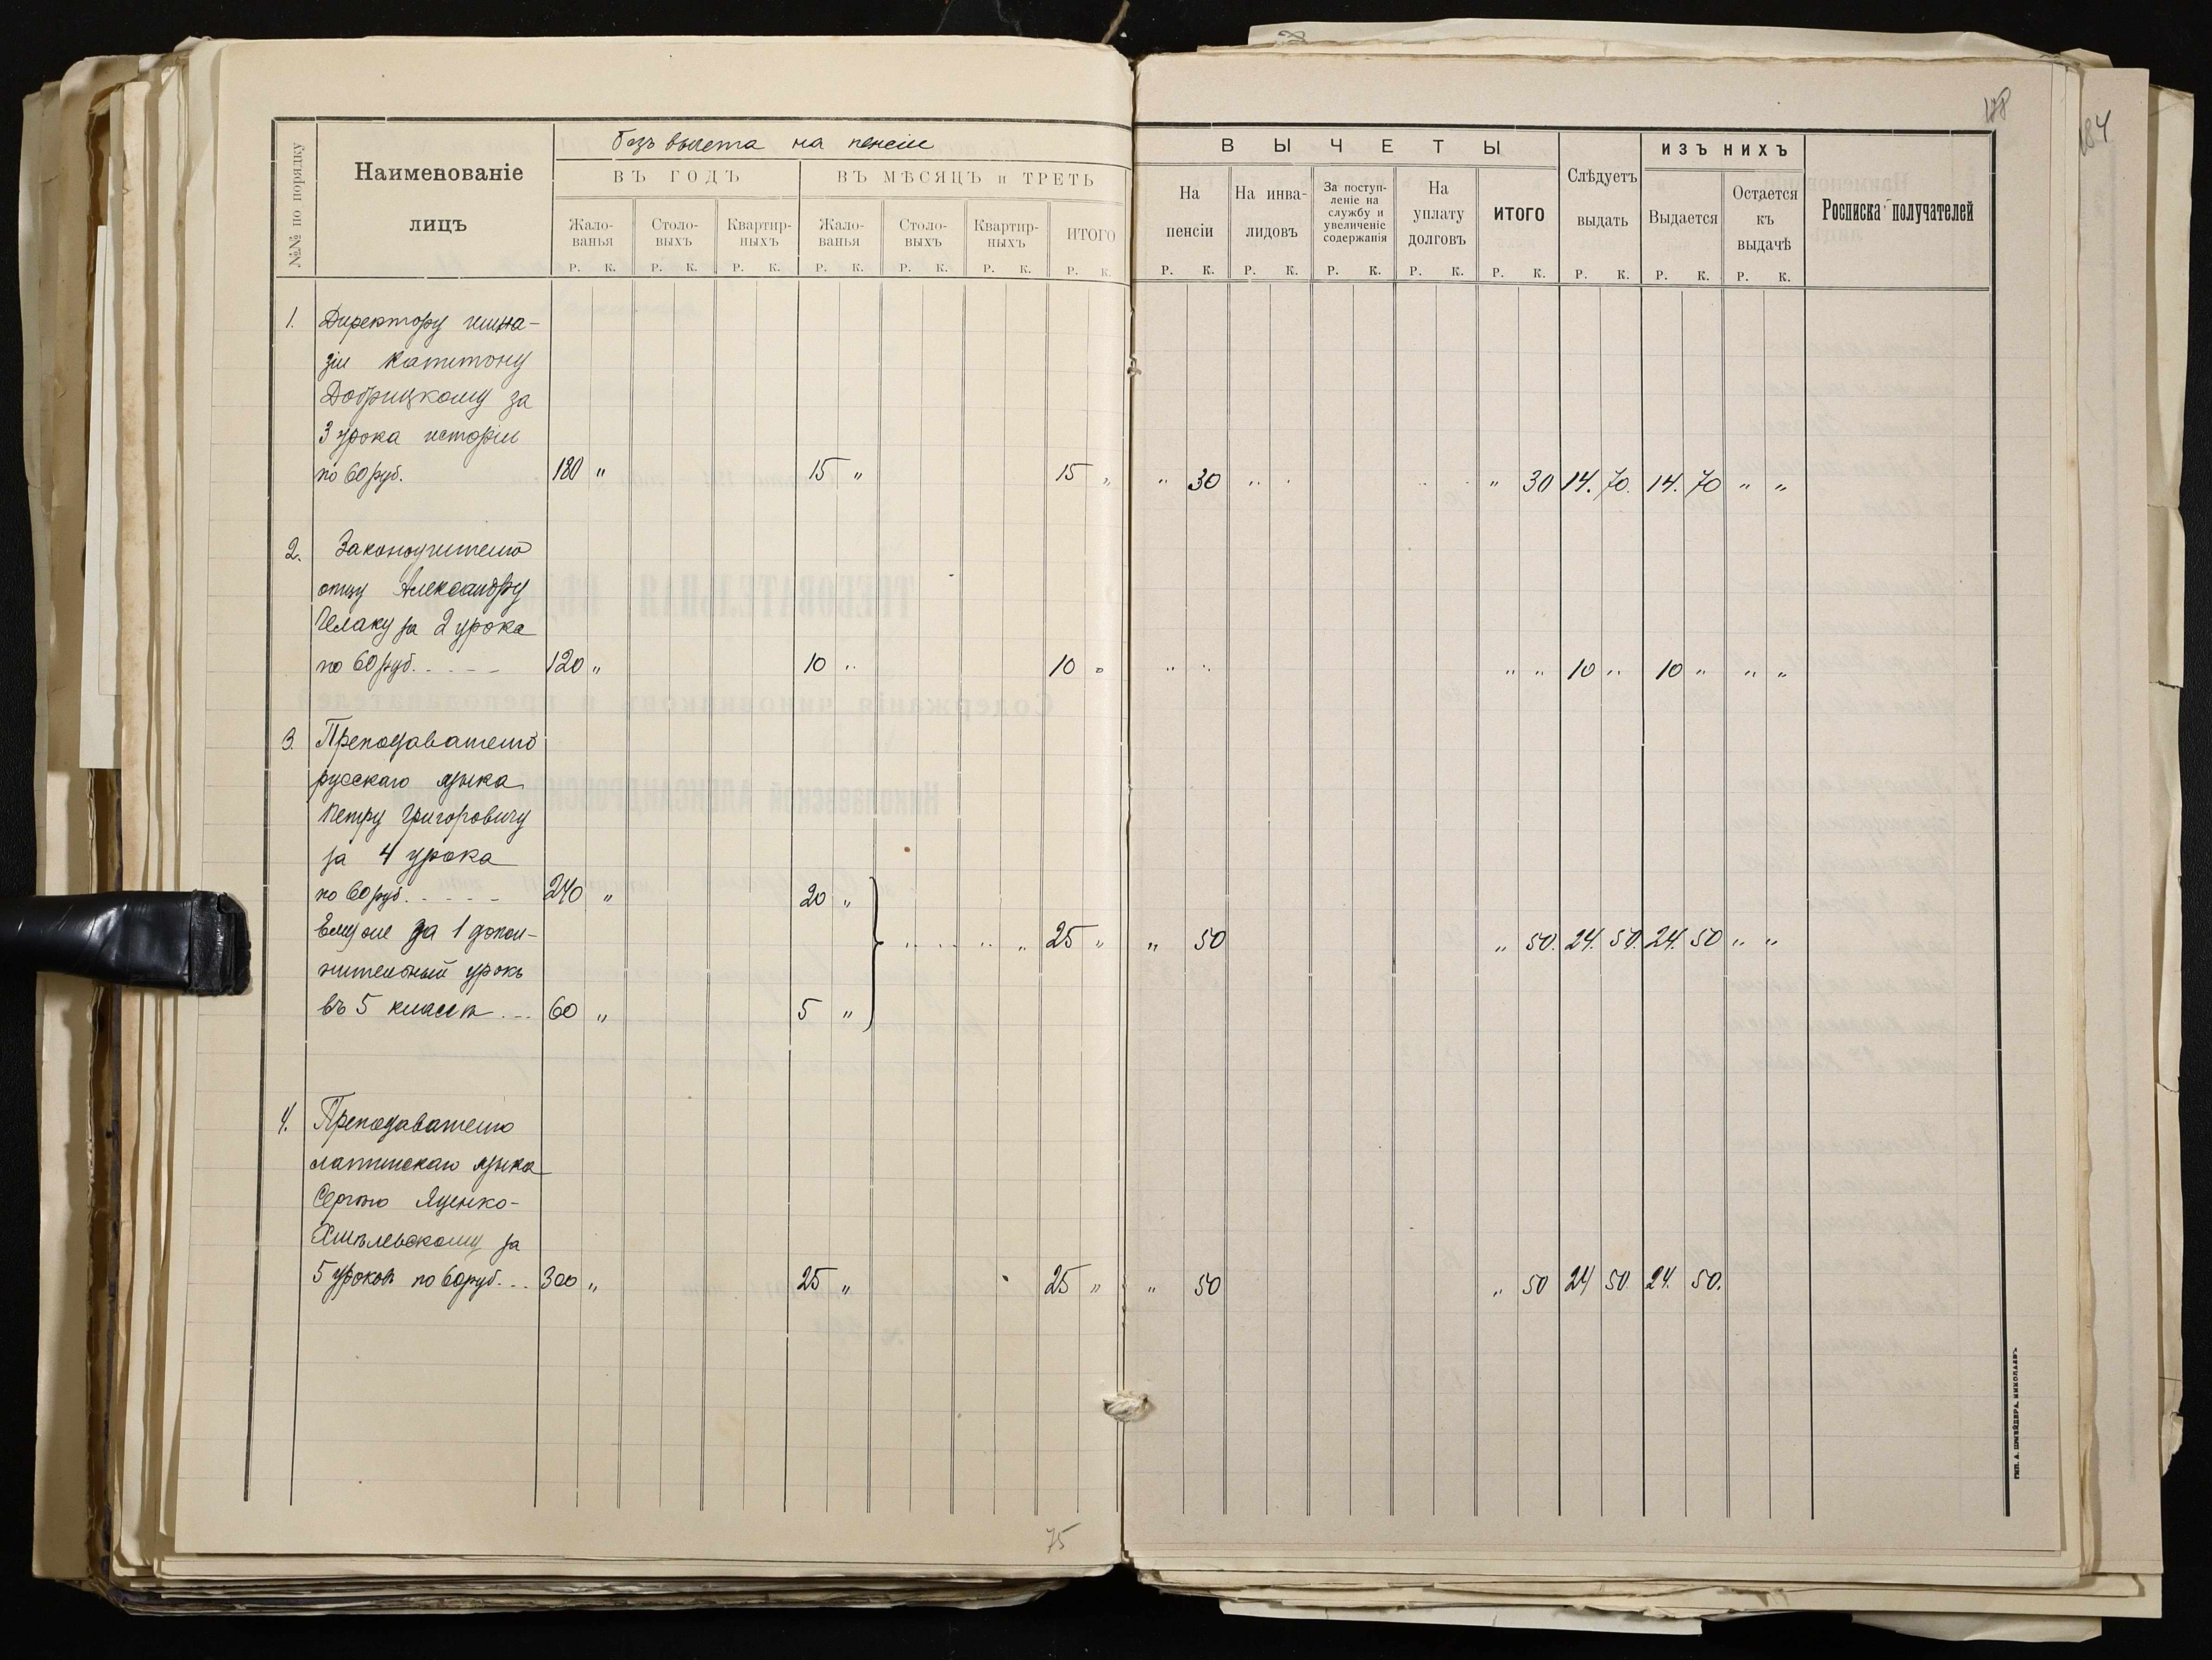 178
184
№№ по порядку
Наименованіе
лицъ
безъ вычета на пенсіи
ВЪ ГОДЪ
ВЪ МѢСЯЦЪ и ТРЕТЬ
Жало-
ванья
Столо-
выхъ
Квартир-
ныхъ
Жало-
ванья
Столо-
выхъ
Квартир-
ныхъ
ИТОГО
Р. К. Р. К. Р. К. Р. К. Р. К. Р. К. Р. К.
ВЫЧЕТЫ
На
пенсіи
На инва-
лидовъ
За поступ-
леніе на
службу и
увеличеніе
содержанія
На
уплату
долговъ
ИТОГО
Слѣдуетъ
выдать
ИЗЪ НИХЪ
Выдается
Остается
къ
выдачѣ
Росписка получателей
Р. К. Р. К. Р. К. Р. К. Р. К. Р. К. Р. К. Р. К.
1. Директору гимна-
зіи Капитону
Добрицкому за
3 урока исторіи
по 60 руб. 180 „ 15 „ 15 „ „ 30 „ „ „ 30 14. 70. 14. 70 „ „
2. Законоучителю
отцу Александру
Челаку за 2 урока
по 60 руб. - - - - 120 „ 10 „ 10 „ „ „ „ „ 10 „ 10 „ „ „
3. Преподавателю
русскаго языка
Петру Григоровичу
за 4 урока
по 60 руб. - - - - - 240 „ 20 „
Ему же за 1 допол- 25 „ „ 50 „ 50. 24. 50. 24. 50 „ „
нительный урокъ
въ 5 классѣ - - - 60 „ 5 „
4. Преподавателю
латинскаго языка
Сергѣю Яценко-
Хмѣлевскому за
5 уроковъ по 60 руб. - - 300 „ 25 „ 25 „ „ 50 „ 50 24 50. 24. 50.
75
ТИП. А. ШНЕЙДЕРА, НИКОЛАЕВЪ